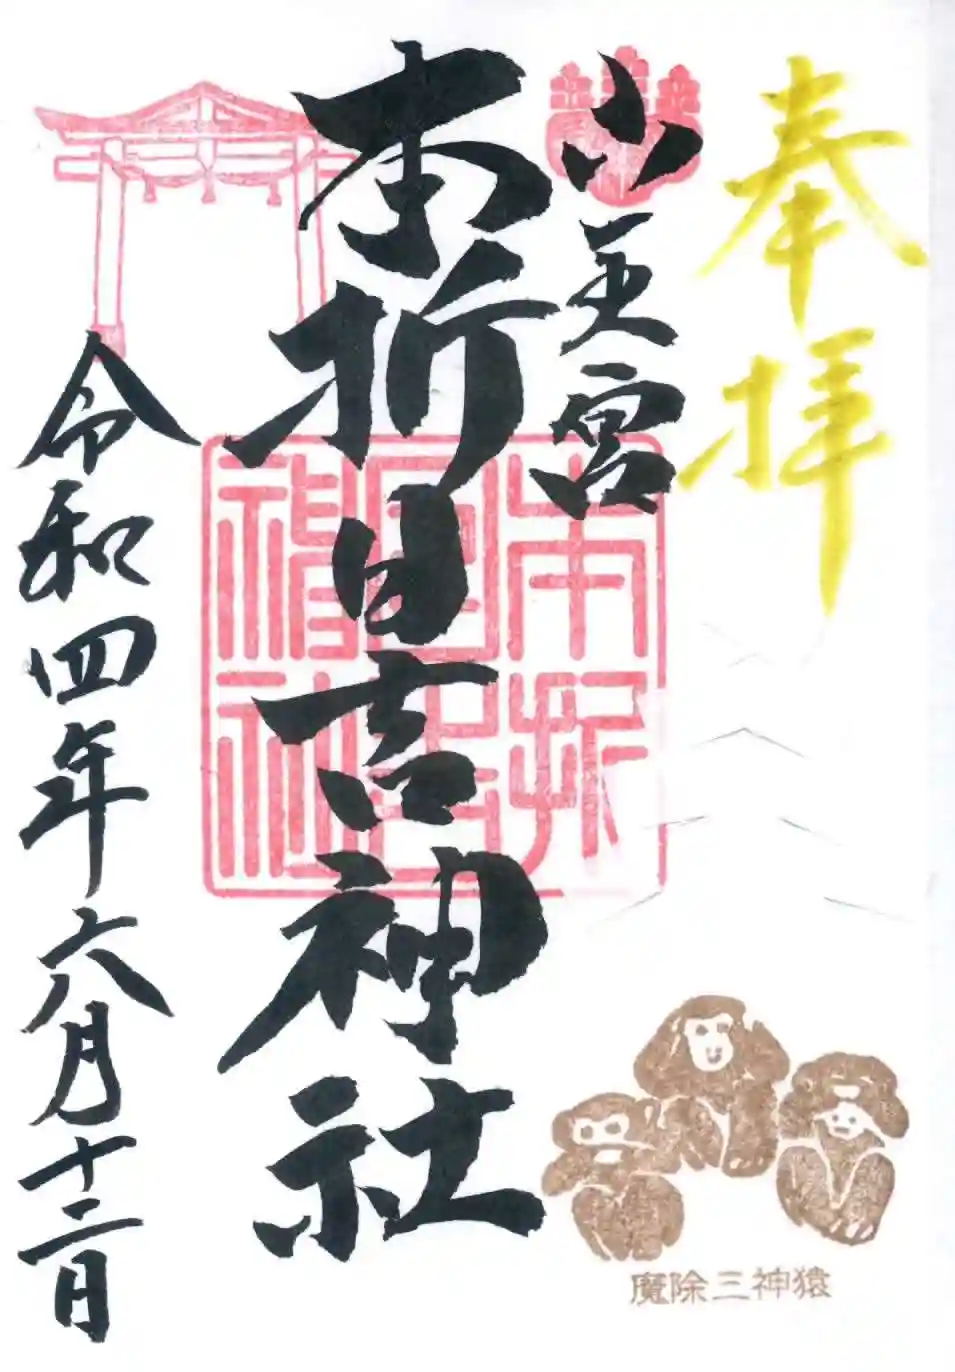 奉拝
山王宮
本折日吉神社
本折
日吉
神社
令和四年六月十二日
魔除三神猿